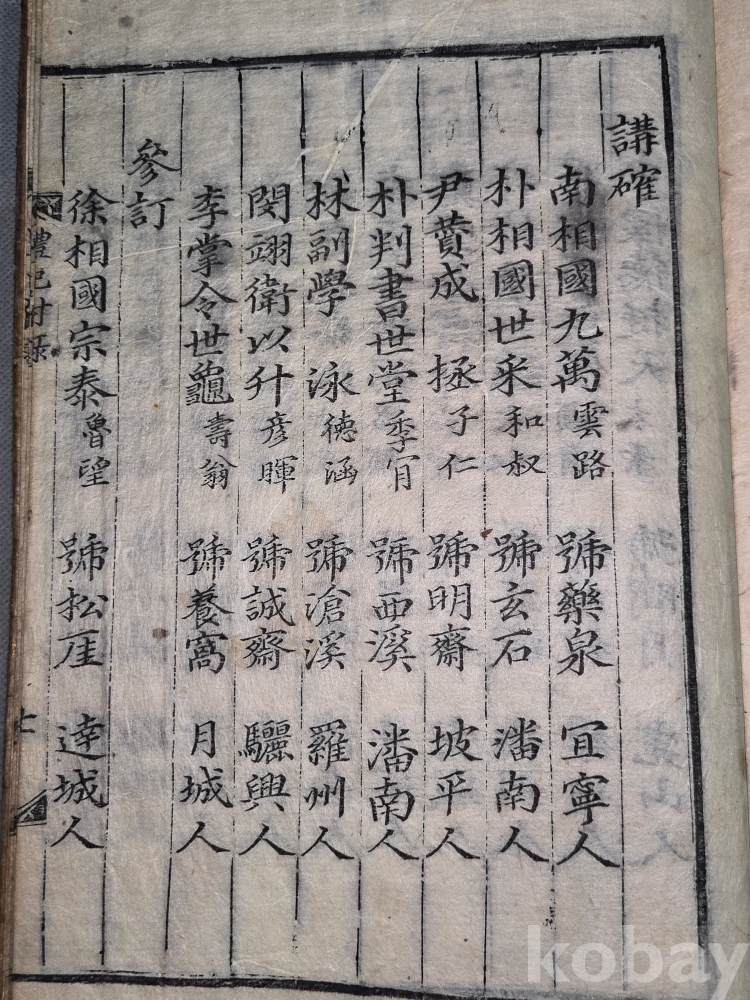 講確
南相國九萬 雲路 號藥泉 宜寧人
朴相國世采 和叔 號玄石 潘南人
尹贊成 拯 子仁 號明齋 坡平人
朴判書世堂 季肯 號西溪 潘南人
林副學 泳 德涵 號滄溪 羅州人
閔翊衛以升 彥暉 號誠齋 驪興人
李掌令世龜 壽翁 號養窩 月城人
參訂
徐相國宗泰 魯望 號松厓 達城人
禮記附錄
七
kobay